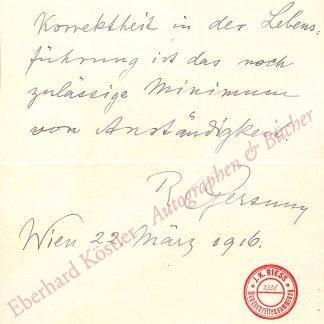 Korrektheit in der Lebens-
führung ist das noch
zulässige Minimum
von Anständigkeit.
R Gersuny
Wien 22 März 1916.
Eberhard Köstler Autographen & Bücher
J. K. RIESS